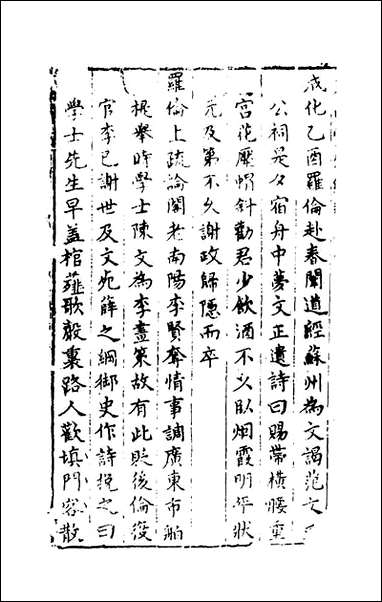 成化乙酉羅倫赴春闈道經蘇州為文謁范文
公祠是夕宿舟中夢文正遺詩曰賜帶橫腰重
宮花壓帽斜勸君少飲酒不久臥烟霞明年狀
元及第不久謝政歸隱而卒
羅倫上疏論閣老南陽李賢奪情事調廣東市舶
提舉時學士陳文為李畫策故有此貶後倫復
官李已謝世及文死薛之綱御史作詩挽之曰
學士先生早盖棺薤歌聲裏路人歡填門客散